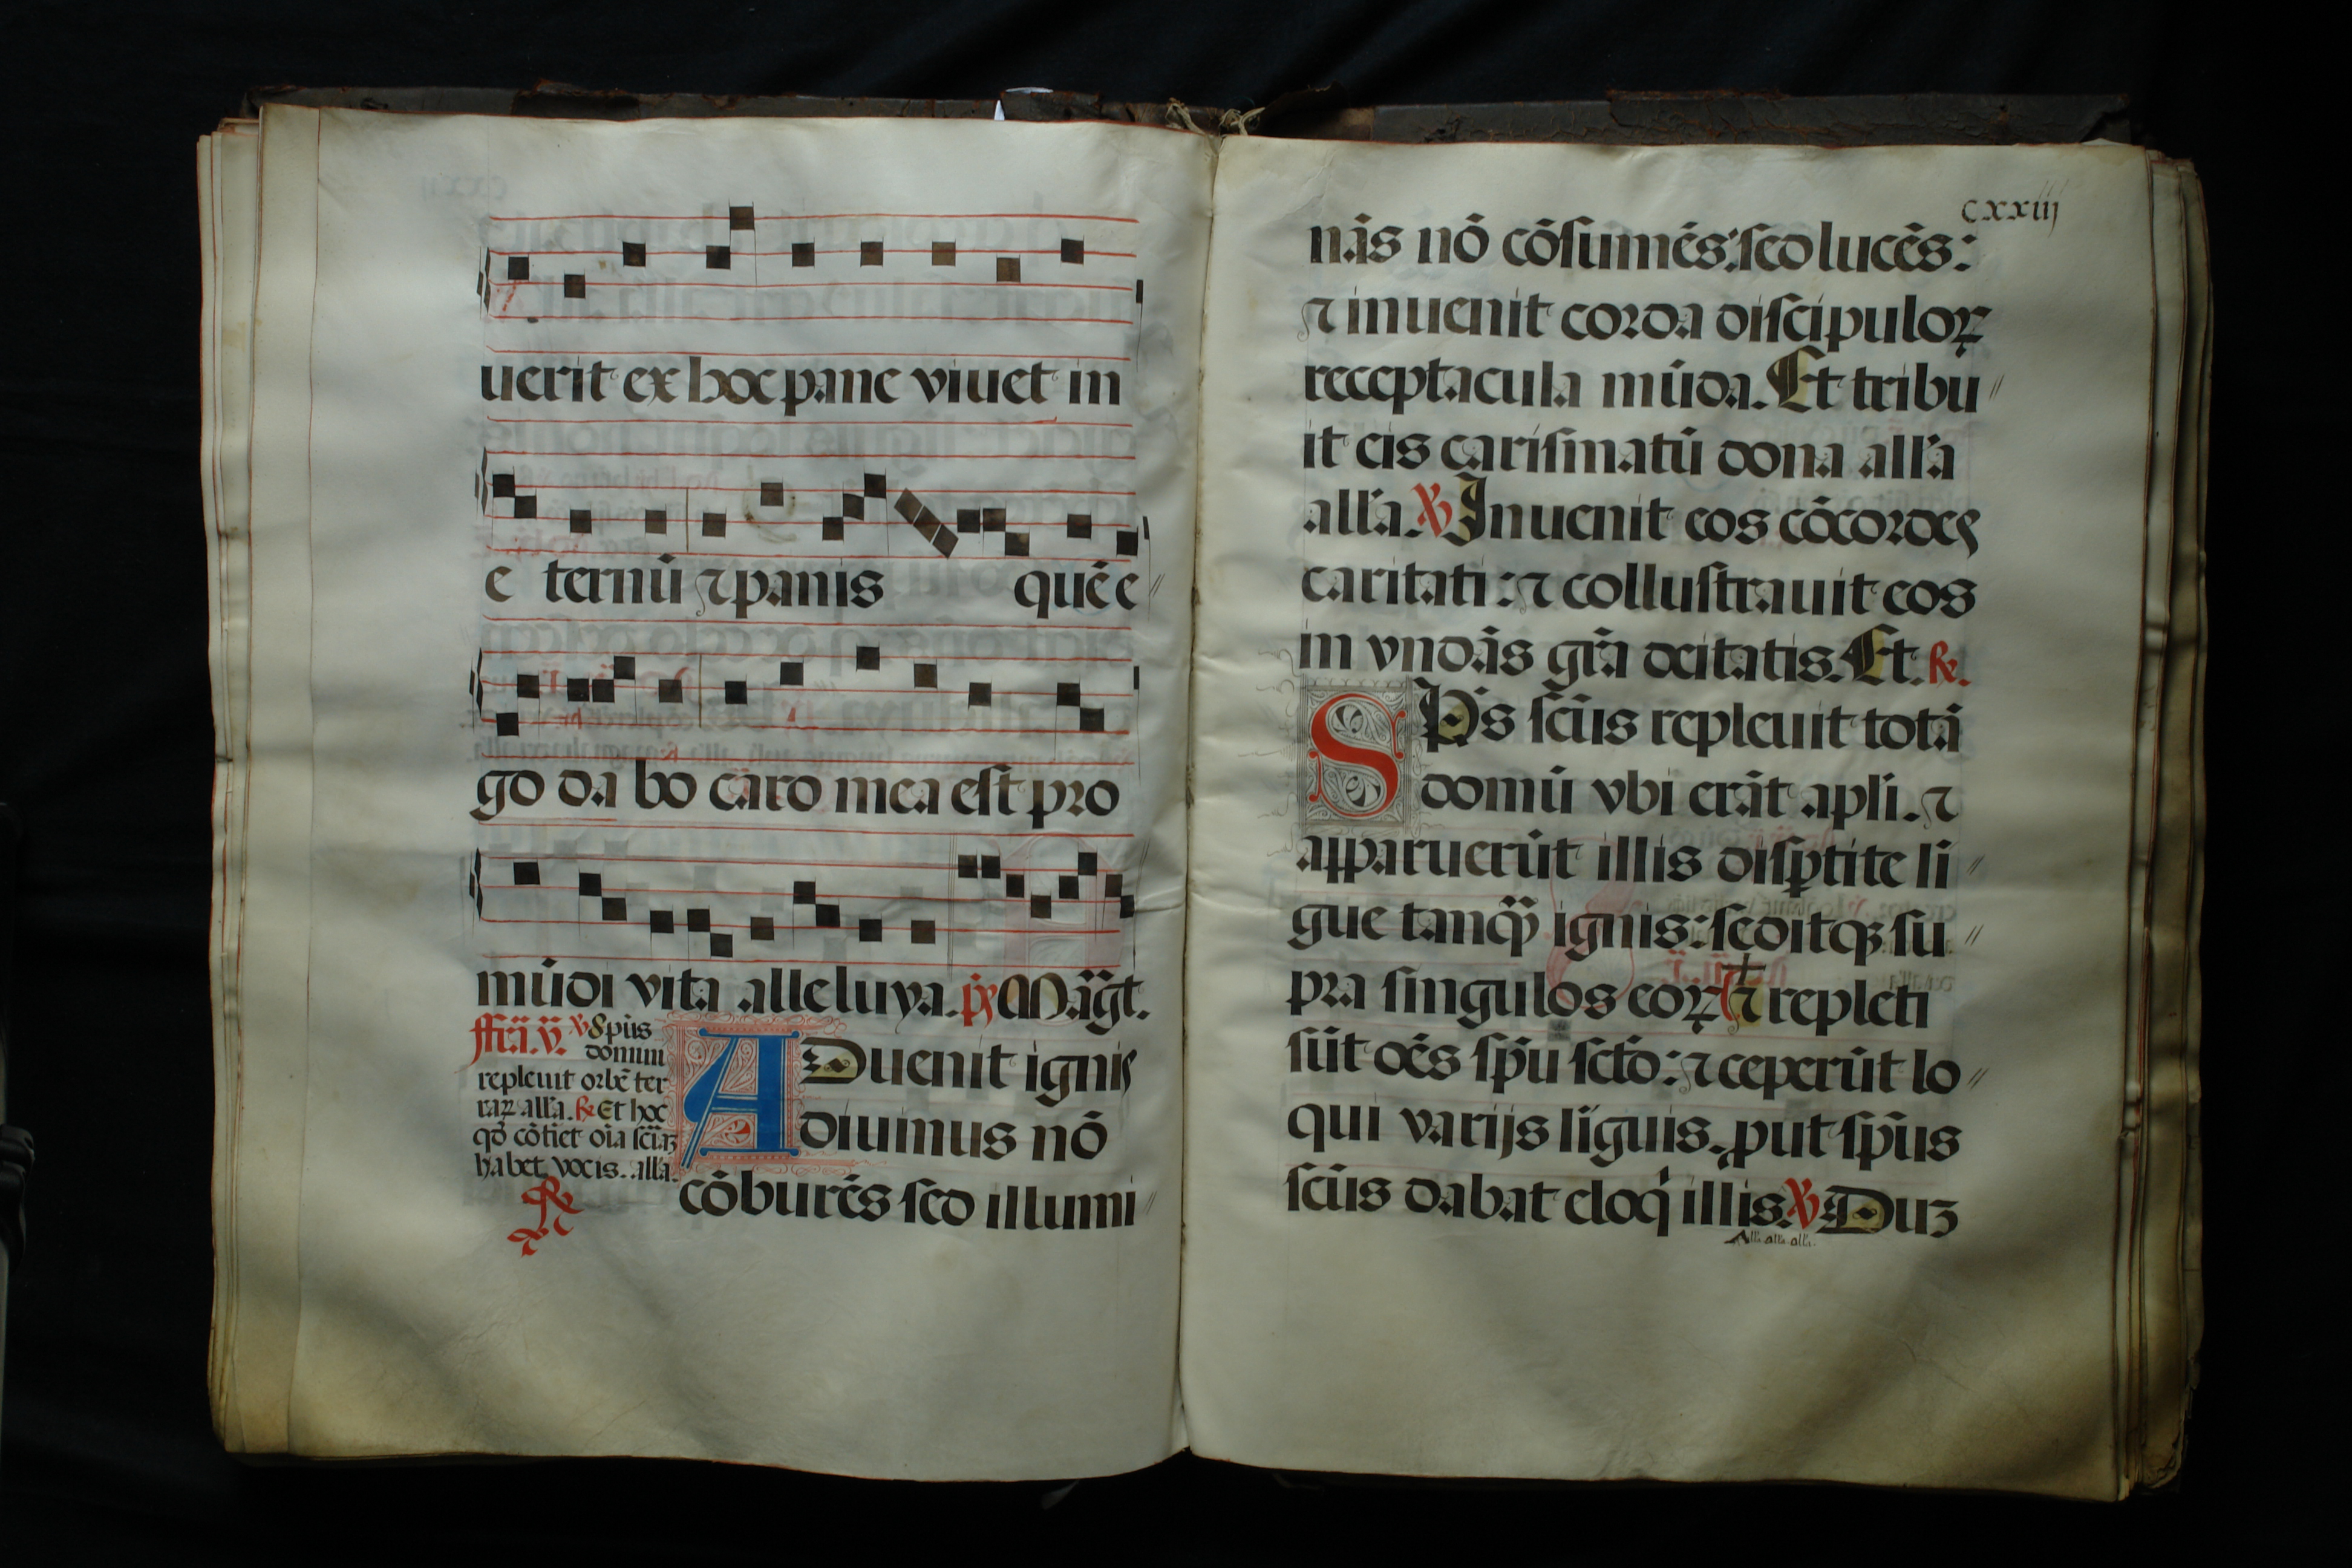 uerit ex hoc pane viuet in
e ternū ⁊ panis quē e
go da bo caro mea est pro
mūdi vita alleluya. p̄s Māgt.
ffr̄a. v̄. ℣ Spūs
domini
repleuit orbē ter
raꝝ all'a. ℟ Et hoc
qd̓ cōtīet oīa sciāꝫ
habet vocis. all'a.
℟
ADuenit ignis
diuinus nō
cōburēs sed illumi
cxxiij
nās nō cōsumēs: sed lucēs:
⁊ inuenit corda discipuloꝝ
receptacula mūda. Et tribu
it eis carismatū dona all'a
all'a. ℣ Inuenit eos cōcordes
caritati: ⁊ collustrauit eos
in vndās gr̄a deitatis. Et. ℟.
SP̄s scūs repleuit totā
domū vbi erāt apl'i. ⁊
apparuerūt illis disꝑtite li
gue tanqȝ̄ ignis: seditqȝ su
pra singulos eoꝝ ⁊ repleti
sūt oēs sp̄u sct̄o: ⁊ ceperūt lo
qui varijs līguis. put sp̄us
scūs dabat eloq̄ illis. ℣ Duꝫ
All'a all'a all'a.